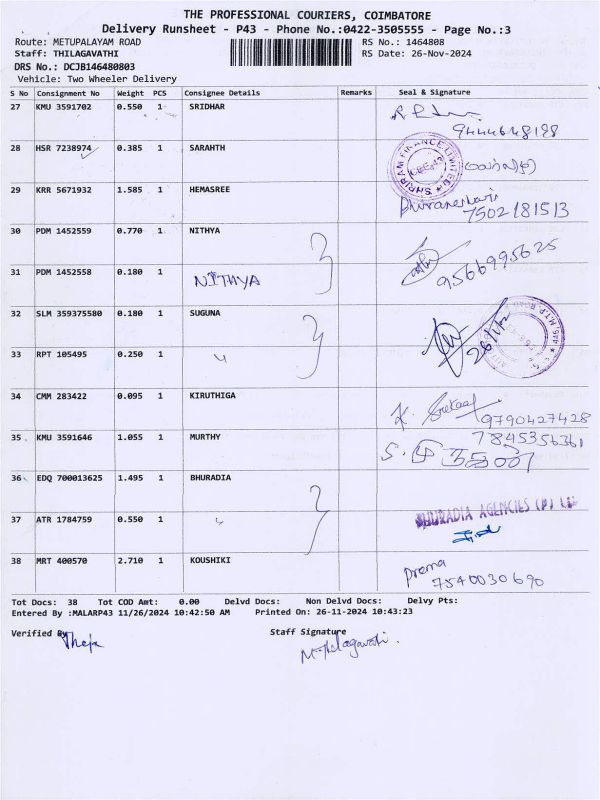 THE PROFESSIONAL COURIERS, COIMBATORE
Delivery Runsheet - P43 - Phone No.:0422-3505555 - Page No.:3
Route: METUPALAYAM ROAD RS No.: 1464808
Staff: THILAGAVATHI RS Date: 26-Nov-2024
DRS No.: DCJB146480803
Vehicle: Two Wheeler Delivery
S No Consignment No Weight PCS Consignee Details Remarks Seal & Signature
27 KMU 3591702 0.550 1 SRIDHAR
9444648198
28 HSR 7238974 0.385 1 SARAHTH SHRIRAM FINANCE LIMITED
29 KRR 5671932 1.585 1 HEMASREE
7502181513
30 PDM 1452559 0.770 1 NITHYA
9566995625
31 PDM 1452558 0.180 1 NITHYA
32 SLM 359375580 0.180 1 SUGUNA
26/11/2
33 RPT 105495 0.250 1 "
34 CMM 283422 0.095 1 KIRUTHIGA
9790427428
35 KMU 3591646 1.055 1 MURTHY 7845356361
36 EDQ 700013625 1.495 1 BHURADIA
37 ATR 1784759 0.550 1 " BHURADIA AGENCIES (P) Ltd
38 MRT 400570 2.710 1 KOUSHIKI Prema
7540030690
Tot Docs: 38 Tot COD Amt: 0.00 Delvd Docs: Non Delvd Docs: Delvy Pts:
Entered By :MALARP43 11/26/2024 10:42:50 AM Printed On: 26-11-2024 10:43:23
Verified By Staff Signature
Theja M. Thilagavati.